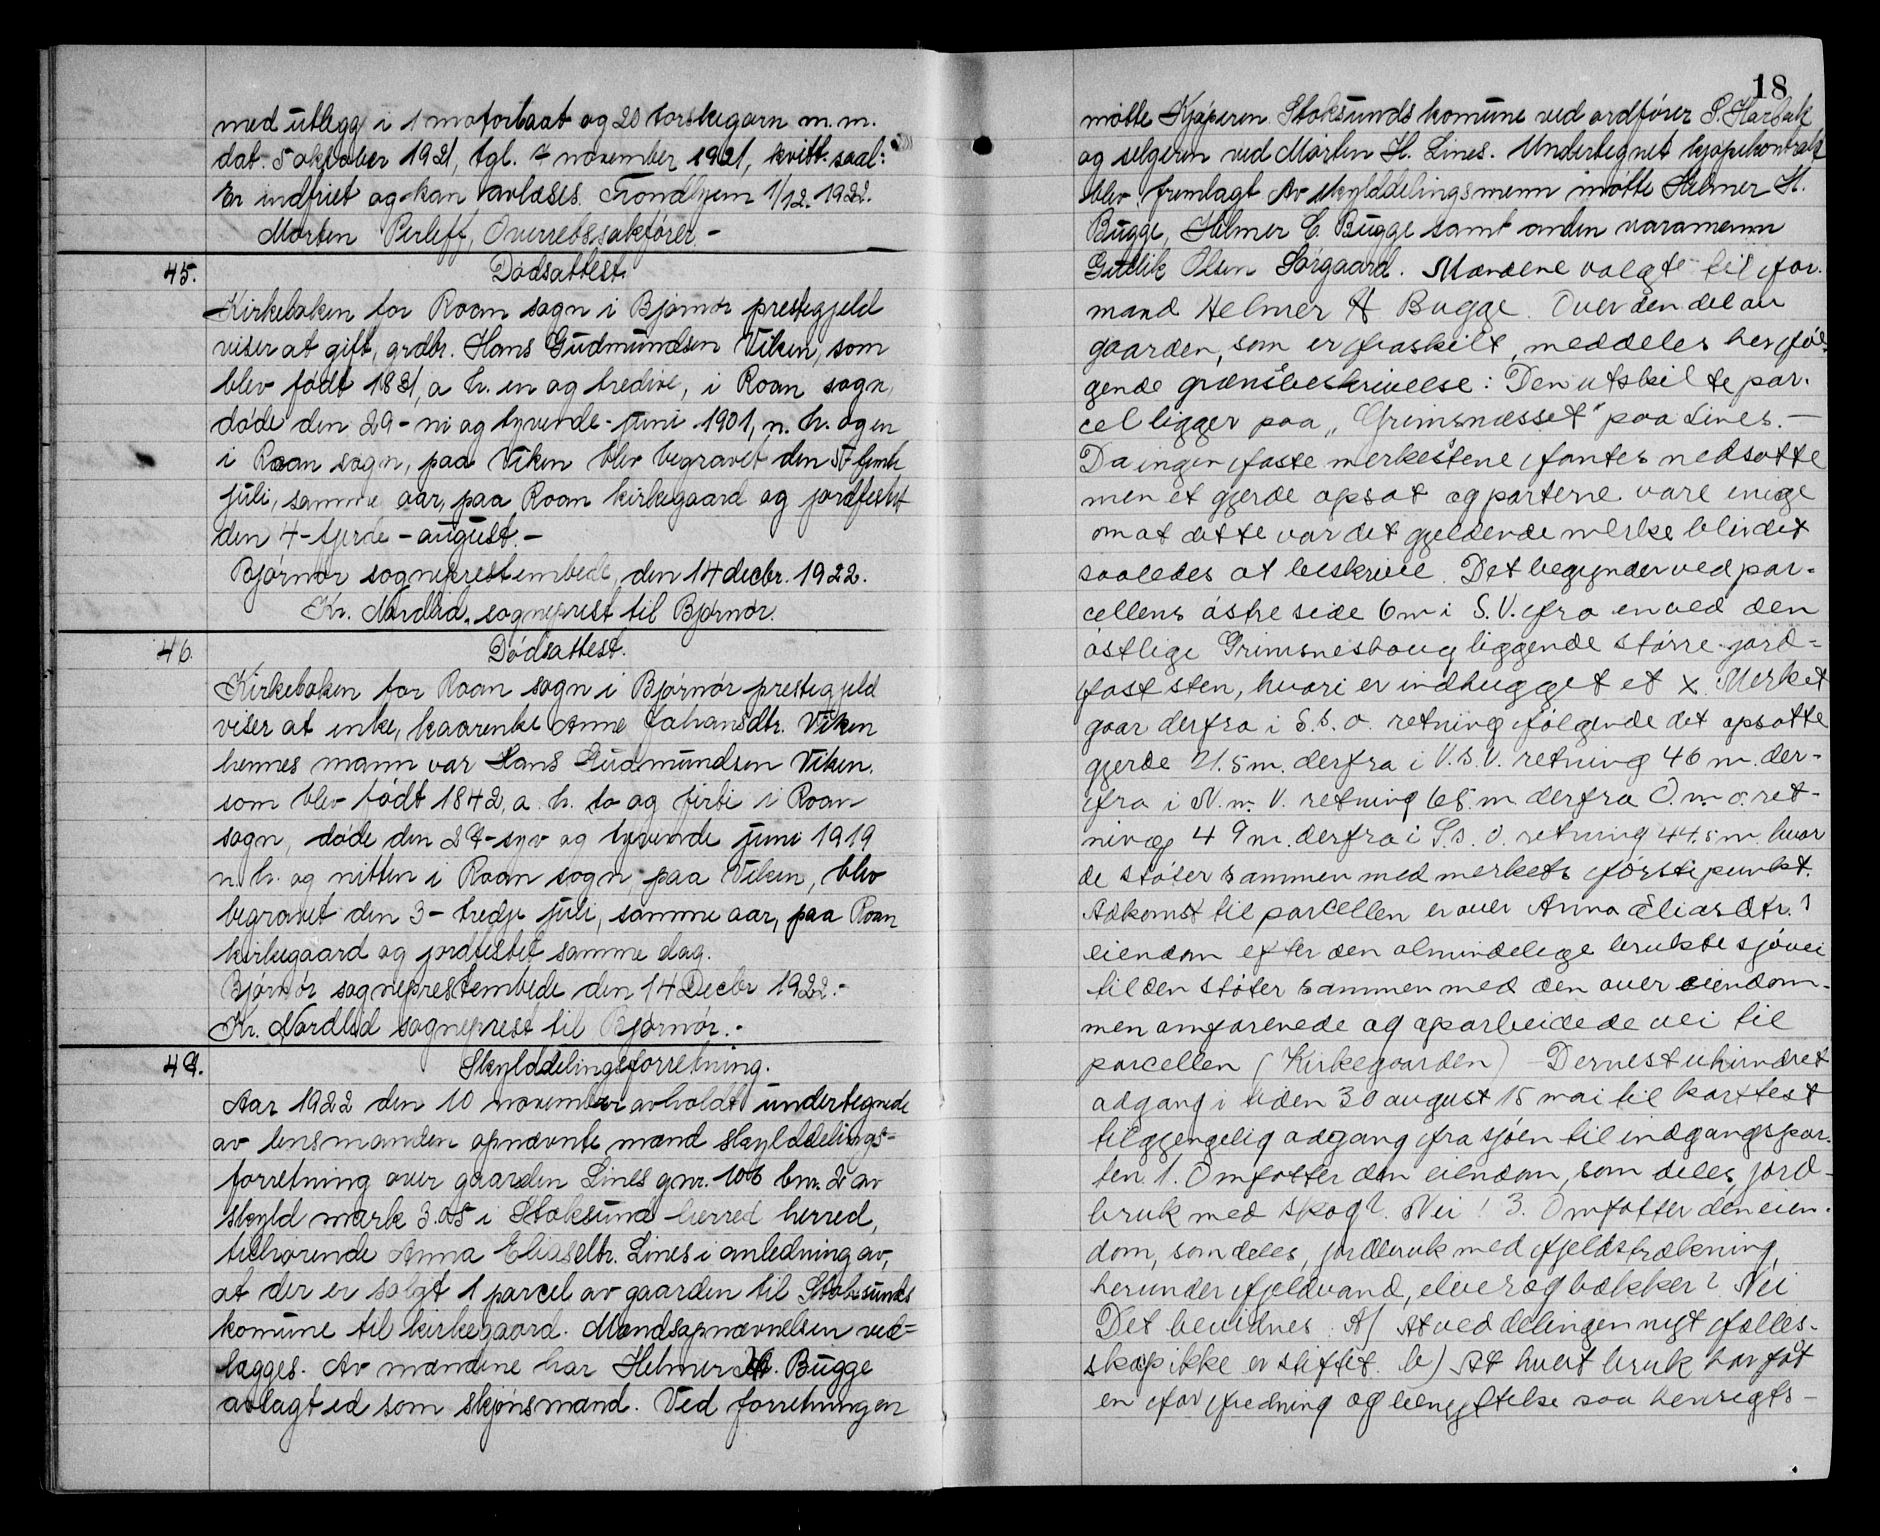 med utlegg i 1 motorbaat og 20 torskegarn m.m.
dat. 5 oktober 1921, tgl. 7 november 1921, kvitt. saal:
Er indfriet og kan avlæses. Trondhjem 1/12. 1922.
Morten Perleff, Overretssakfører. -
45.
Dødsattest.
Kirkeboken for Roan sogn i Bjørnør prestegjeld
viser at gift, grdbr. Hans Gudmundsen Viken, som
blev født 1831, a. h. en og tredive, i Roan sogn,
døde den 29 - ni og tyvende - juni 1901, n. h. og en
i Roan sogn, paa Viken blev begravet den 5 femte
juli, samme aar, paa Roan kirkegaard og jordfestet
den 4 - fjerde - august. -
Bjørnør sogneprestembede, den 14 decbr. 1922.
Kr. Nordlid, sogneprest til Bjørnør.
46.
Dødsattest.
Kirkeboken for Roan sogn i Bjørnør prestegjeld
viser at enke, kaarenke Anne Johansdtr. Viken
hennes mann var Hans Gudmundsen Viken.
som blev født 1842, a. h. to og førti i Roan
sogn, døde den 27 - syv og tyvende juni 1919
n. h. og nitten i Roan sogn paa Viken, blev
begravet den 3 - tredje juli, samme aar, paa Roan
kirkegaard og jordfestet samme dag.
Bjørnør sogneprestembede den 14 Decbr 1922. -
Kr. Nordlid sogneprest til Bjørnør. -
47.
Skylddelingsforretning.
Aar 1922 den 10 november avholdt undertegnede
av lensmanden opnævnte mænd skylddelings-
forretning over gaarden Lines gnr. 106 bnr. 2 av
skyld mark 3.05 i Stoksund herred herred,
tilhørende Anna Eliasdtr. Lines i anledning av,
at der er solgt 1 parcel av gaarden til Stoksunds
komune til kirkegaard. Mandsopnævnelsen ved-
lægges. Av mændene har Helmer H. Bugge
avlagt ed som skjønsmand. Ved forretningen
18
møtte Kjøperen Stoksunds komune ved ordfører S. Harbak
og selgeren ved Morten H. Lines. Undertegnet kjøpekontrakt
blev fremlagt Av skylddelingsmenn møtte Helmer H.
Bugge, Helmer C. Bugge samt anden varamenn
Gutlik Olsen Sørgaard. Mændene valgte til for-
mand Helmer H Bugge. Over den del av
gaarden, som er fraskilt, meddeles herføl-
gende grænsbeskrivelse: Den utskilte par-
cel ligger paa „Grimsnæsset" paa Lines. -
Da ingen faste merkestene fantes nedsatte
men et gjerde opsat og parterne vare enige
om at dette var det gjeldende merke blev det
saaledes at beskrive. Det begynder ved par-
cellens østre side 6 m i S.V. fra en ved den
østlige Grimsneshaug liggende større jord-
fast sten, hvori er indhugget et x. Merket
gaar derfra i S.s.o. retning følgende det opsatte
gjerde 21.5 m. derfra i V.s.V. retning 46 m. der-
fra i N.n.V. retning 65 m. derfra O.n.o. ret-
ning 49 m. derfra i S.s.o. retning 44.5 m. hvor
de støter sammen med merkets første punkt.
Adkomst til parcellen er over Anna Eliasdtr.s
eiendom efter den almindelige brukte sjøvei
til den støter sammen med den over eiendom-
men omforenede og oparbeidede vei til
parcellen (Kirkegaarden) Dernest uhindret
adgang i tiden 30 august 15 mai til kortest
tilgjengelig adgang fra sjøen til indgangspor-
ten. 1. Omfatter den eiendom, som deles, jord-
bruk med skog?. Nei! 3. Omfatter den eien-
dom, som deles, jordbruk med fjeldstrækning,
herunder fjeldvand, elver og bækker? Nei
Det bevidnes: A/ At ved delingen nyt fælles-
skap ikke er stiftet. b) At hvert bruk har fåt
en for fredning og benyttelse saa hensigts -